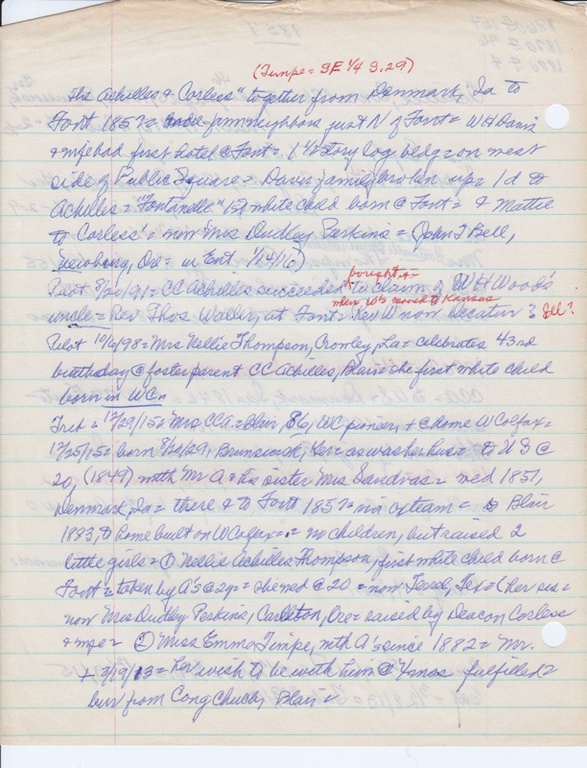 (Timpe = SE 1/4 S, 29)
The Achilles & Corless" together from Denmark, Ia to
Font 1857 = farm neighbors just N of Font = W H Davis
& wife had first hotel @ Font = 1 1/2 story log bldg on west
side of Public Square = Davis family broken up = 1 d to
Achilles = "Fontanelle" 1st white child born @ Font = & Mattie
to Corless' = now Mrs Dudley Perkins = (John T Bell,
Newberg, Ore = in Ent 1/14/16)
bought +
Pilot 8/20/91 = C C Achilles succeeded to claim of W H Wood's
when W's moved to Kansas
uncle = Rev Thos Waller, at Font = Rev W now Decatur Ill?
Pilot 10/6/98 = Mrs Nellie Thompson, Crowley, La = celebrates 43nd
birthday @ foster parent C C Achilles, Blair = she first white child
born in WC =
Trib = 12/29/15 = Mrs CCA = Blair, 86, WC pioneer, + @ home W Colfax =
12/25/15 = born 8/20/29, Brunswick, Ger = as was her husb = to U S @
20, (1849) with Mr A = his sister Mrs Sandvas = wed 1851,
Denmark, Ia = there & to Font 1857 = via oxteam = to Blair
1883, to home built on W Colfax = = no children, but raised 2
little girls = (1) Nellie Achilles Thompson, first white child born @
Font = taken by A's @ 2 yr = she wed @ 20 = now Texas, Tex = (her sis =
now Mrs Dudley Perkins, Carlton, Ore = raised by Deacon Corless
& wife = (2) Miss Emma Timpe, with A's since 1882 = Mr.
+ 3/19/13 = her wish to be with him @ Xmas fulfilled =
bur from Cong Church, Blair =